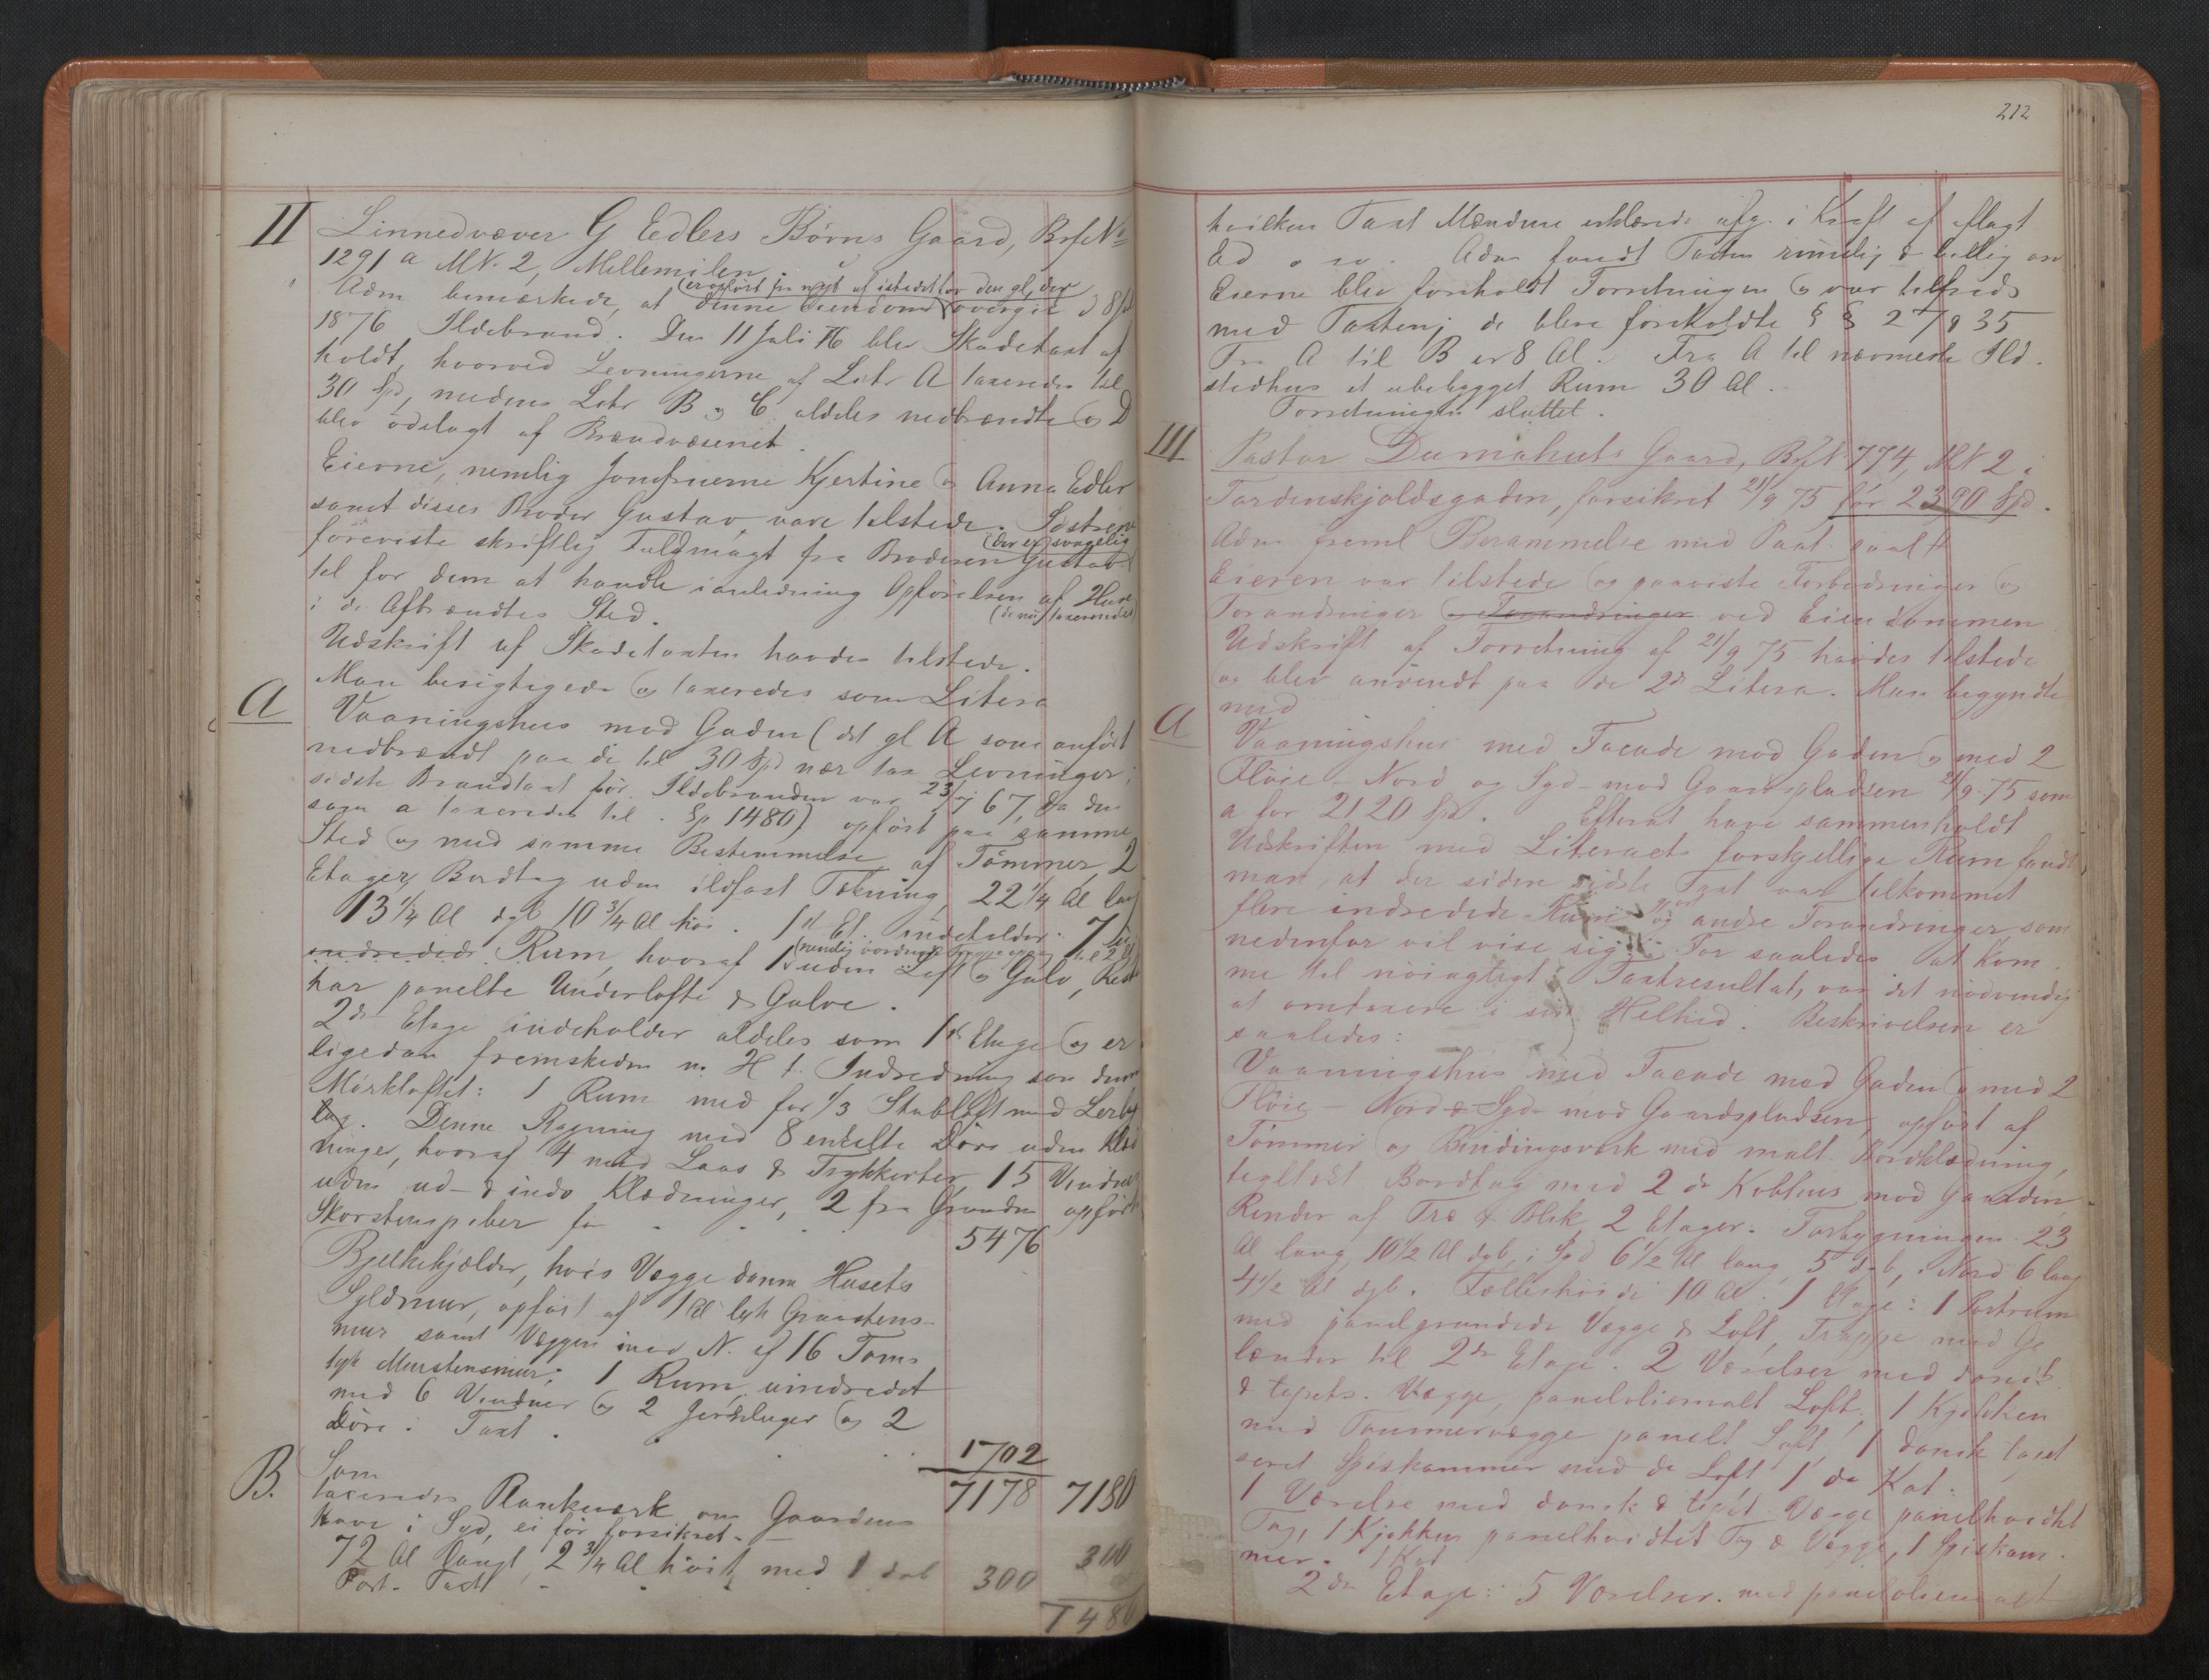 II Linnedvæver G Edlers Børns Gaard, Brfc No
1291 a MN. 2, Møllemilen.
(er opført fra nyt af istedetfor den gl, der
Adm bemærkede, at denne Eiendom overgik d 8
1876 Ildebrand. Den 11 Juli 76 blev Skadetaxt af
holdt, hvorved Levningerne af Litr A taxeredes til
30 Spd, medens Litr B og C aldeles nedbrændte og D
blev ødelagt af Brandvæsenet.
Eierne, nemlig Jomfruerne Kjertine og Anna Edler
samt disses Broder Gustav vare tilstede. Søstrene
(der er svagelig
foreviste skriftlig Fuldmagt fra Broderen Gustav
til for dem at handle i anledning Opførelsen af Huse
(de nu taxerende)
i de Afbrændtes Sted.
Udskrift af Skadetaxten havdes tilstede.
Man besigtigede og taxeredes som Litera
A Vaaningshus mod Gaden (det gl A som anført
nedbrændt paa de til 30 Spd nær tax Levninger;
sidste Brandtaxt før Ildebranden var 23/7 67, da den
som a taxeredes til Sp 1480) opført paa samme
Sted og med samme Bestemmelse af Tømmer, 2
Etager, Bordtag uden ildfast Tækning, 22 1/4 Al lang
13 1/4 Al dyb 10 3/4 Al høi. 1st Et. indeholder 7
indredede Rum, hvoraf 1 uden Loft og Gulv, Rest
har panelte Underlofte & Gulve.
2den Etage indeholder aldeles som 1st Etage og er
ligedan fremskeden m. H t. Indredning som denne
Mørkloftet: 1 Rum med for 1/3 Stubloft med Ler
lag. Denne Bygning med 8 enkelte Døre uden Klæd
ninger, hvoraf 4 med Laas & Trykkerter, 15 Vinduer
uden ud- & indv Klædninger, 2 fra Grunden opført
Skorstenspiber for 5476
Bjelkekjælder, hvis Vægge danne Husets
Syldmur, opført af 1 Al tyk Graastens
mur samt Væggen mod N. af 16 Toms
tyk Murstensmur; 1 Rum, uindredet
med 6 Vinduer og 2 Jernluger og 2
Døre: Taxt 1702
B. Som 7178 7180
taxeredes Plankeværk om Gaardens
Have i Syd, ei før forsikret.
72 Al langt, 2 3/4 Al høit med 1 dob 300
Port. Taxt 300
7480
212
hvilken Taxt Mændene erklærede afg. i Kraft af aflagt
Ed o sv. Adm fandt Taxten rimelig & billig
Eierne blev foreholdt Forretningen og var tilfreds
med Taxten; de bleve foreholdte § § 27 & 35
Fra A til B er 8 Al. Fra A til nærmeste Ild
stedhus et ubebygget Rum 30 Al.
Forretningen sluttet.
III Pastor Dumahuts Gaard, Brfc No 774, MN 2 i
Tordenskjoldsgaden, forsikret 21/9 75 før 2390 Spd.
Adm freml Berammelse med Paat
Eieren var tilstede og paaviste Forbedringer og
Forandringer og Forandringer ved Eiendommen
Udskrift af Forretning af 21/9 75 havdes tilstede
og blev anvendt paa de 2de Litera. Man begyndte
med
A Vaaningshus med Facade mod Gaden og med 2
Fløie - Nord og Syd - mod Gaardspladsen 21/9 75 som
a for 2120 Spd. Efterat have sammenholdt
Udskriften med Literaets forskjellige Rum fandt
man, at der siden sidste Taxt var tilkommet
flere indredede Rum og andre Forandringer, som
nedenfor vil vise sig. For saaledes at kom
me til nøiagtigt Taxtresultat, var det nødvendig
at omtaxere i sin Helhed. Beskrivelsen er
saaledes:
Vaaningshus med Facade mod Gaden og med 2
Fløie - Nord & Syd - mod Gaardspladsen, opført af
Tømmer og Bindingsværk med malt Bordklædning,
tegltækt Bordtag med 2 de Kobhus mod Gaarden,
Render af Træ & Blik, 2 Etager. Forbygningen 23
Al lang, 10 1/2 Al dyb, i Syd 6 1/2 Al lang 5 dyb, i Nord 6 lang
4 1/2 Al dyb. Fælleshøide 10 Al. 1 Etage: 1 Portrum
med panelgrundede Vægge & Loft, Trappe med Ge
lænder til 2den Etage. 2 Værelser med
& tapets. Vægge, paneloliemalt Loft, 1 Kjøkken
med Tømmervægge panelt Loft, 1 dansk tapet
seret Spiskammer med do Loft 1 do Kot.
1 Værelse med dansk & tapet Vægge panelhvidtet
Tag, 1 Kjøkken panelhvidtet Tag & Vægge, 1 Spiskam
mer. 1 Kot
2den Etage: 5 Værelser med paneloliemalt